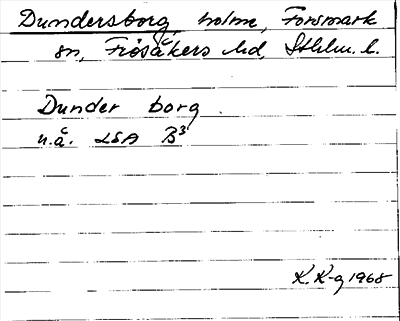 Dundersborg, holme, Forsmark
sn, Frösåkers hd, Sthlm. l.
Dunder borg
u.å. LSA B³
K. K-g 1968